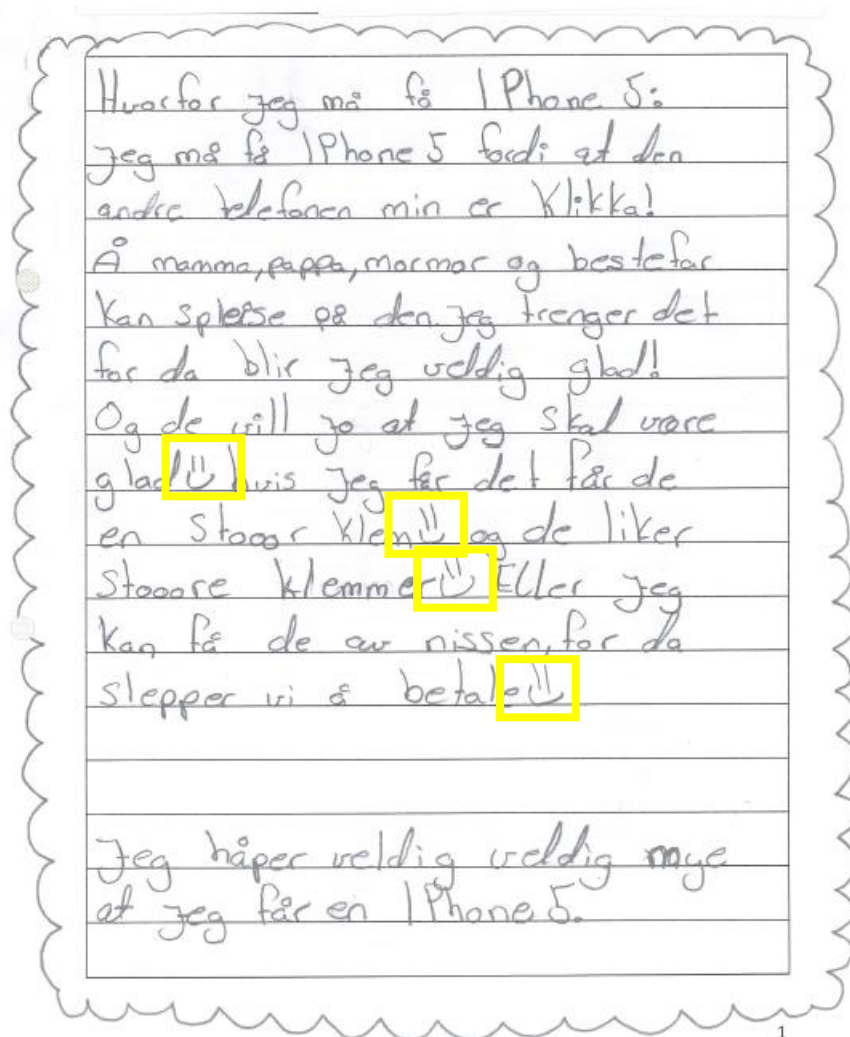 Hvorfor jeg må få IPhone 5:
jeg må få IPhone 5 fordi at den
andre telefonen min er klikka!
Å mamma, pappa, mormor og bestefar
kan spleise på den. jeg trenger det
for da blir jeg veldig glad!
Og de vill jo at jeg skal være
glad hvis jeg får det får de
en stooor klem og de liker
stooore klemmer Eller jeg
kan få de av nissen, for da
slepper vi å betale
Jeg håper veldig veldig mye
at jeg får en IPhone 5.
1